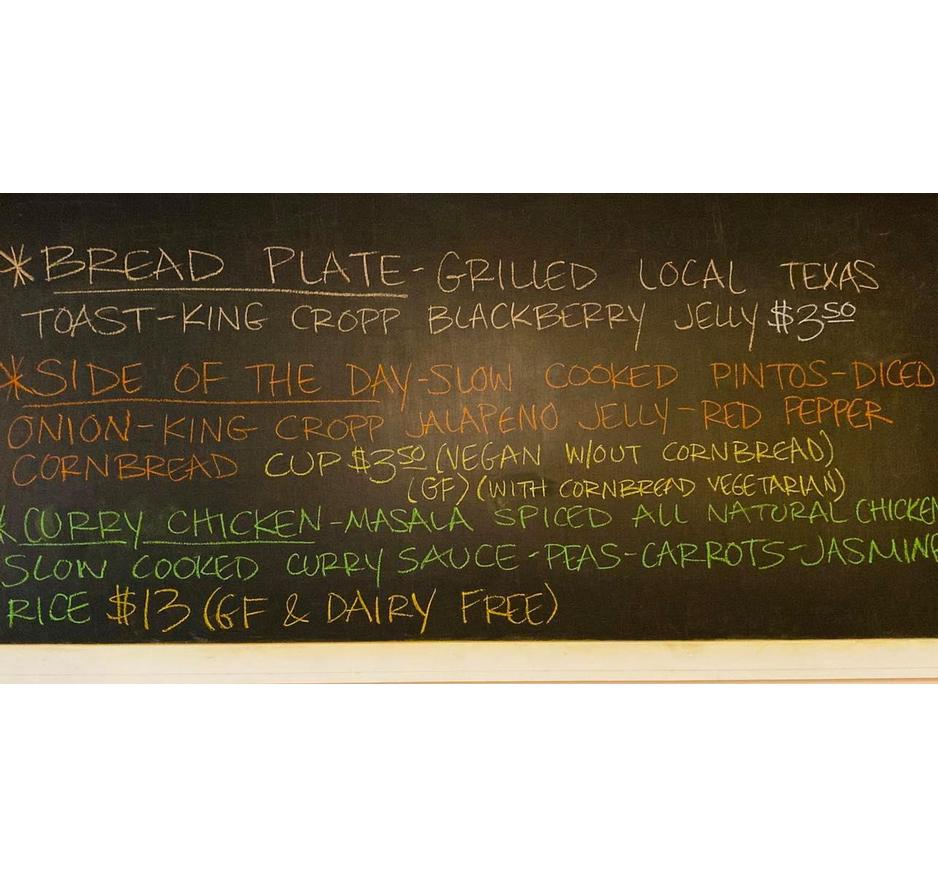 *BREAD PLATE-GRILLED LOCAL TEXAS
TOAST-KING CROPP BLACKBERRY JELLY $3.50
*SIDE OF THE DAY-SLOW COOKED PINTOS-DICED
ONION-KING CROPP JALAPENO JELLY-RED PEPPER
CORNBREAD CUP $3.50 (VEGAN W/OUT CORNBREAD)
(GF) (WITH CORNBREAD VEGETARIAN)
*CURRY CHICKEN-MASALA SPICED ALL NATURAL CHICKEN
SLOW COOKED CURRY SAUCE-PEAS-CARROTS-JASMINE
RICE $13 (GF & DAIRY FREE)